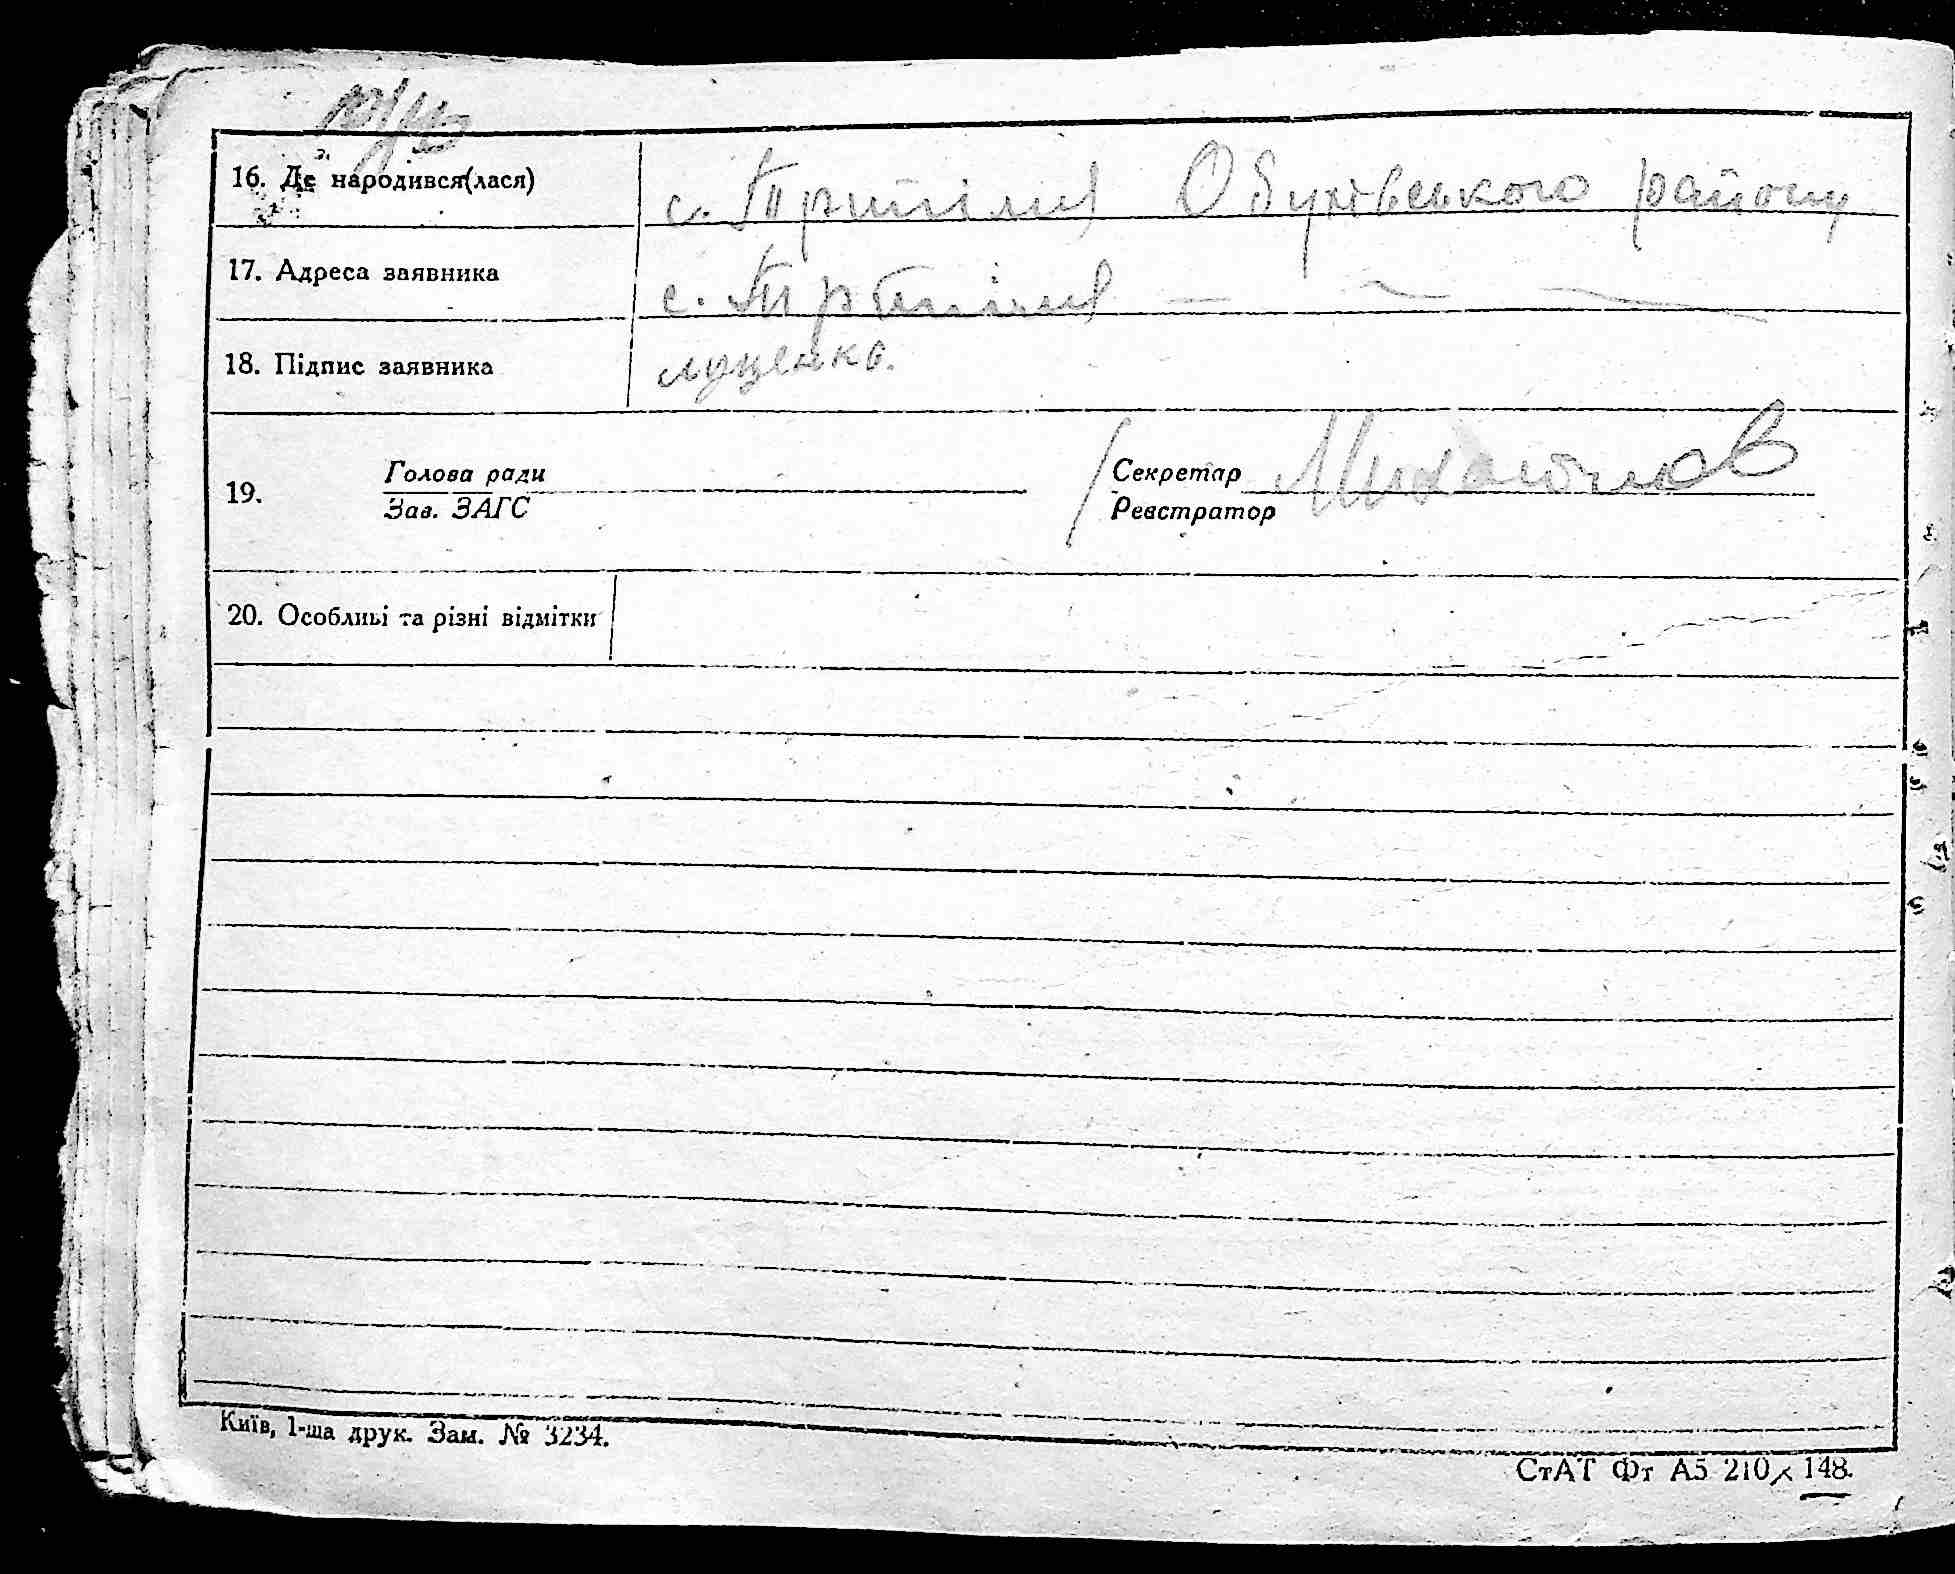 16. Де народився(лася) с. Трипілля Обухівського району
17. Адреса заявника с. Трипілля — — —
18. Підпис заявника луценко.
Голова ради Секретар
19.
Зав. ЗАГС Реєстратор
20. Особливі та різні відмітки
Київ, 1-ша друк. Зам. № 3234.
СтАТ Фт А5 210×148.